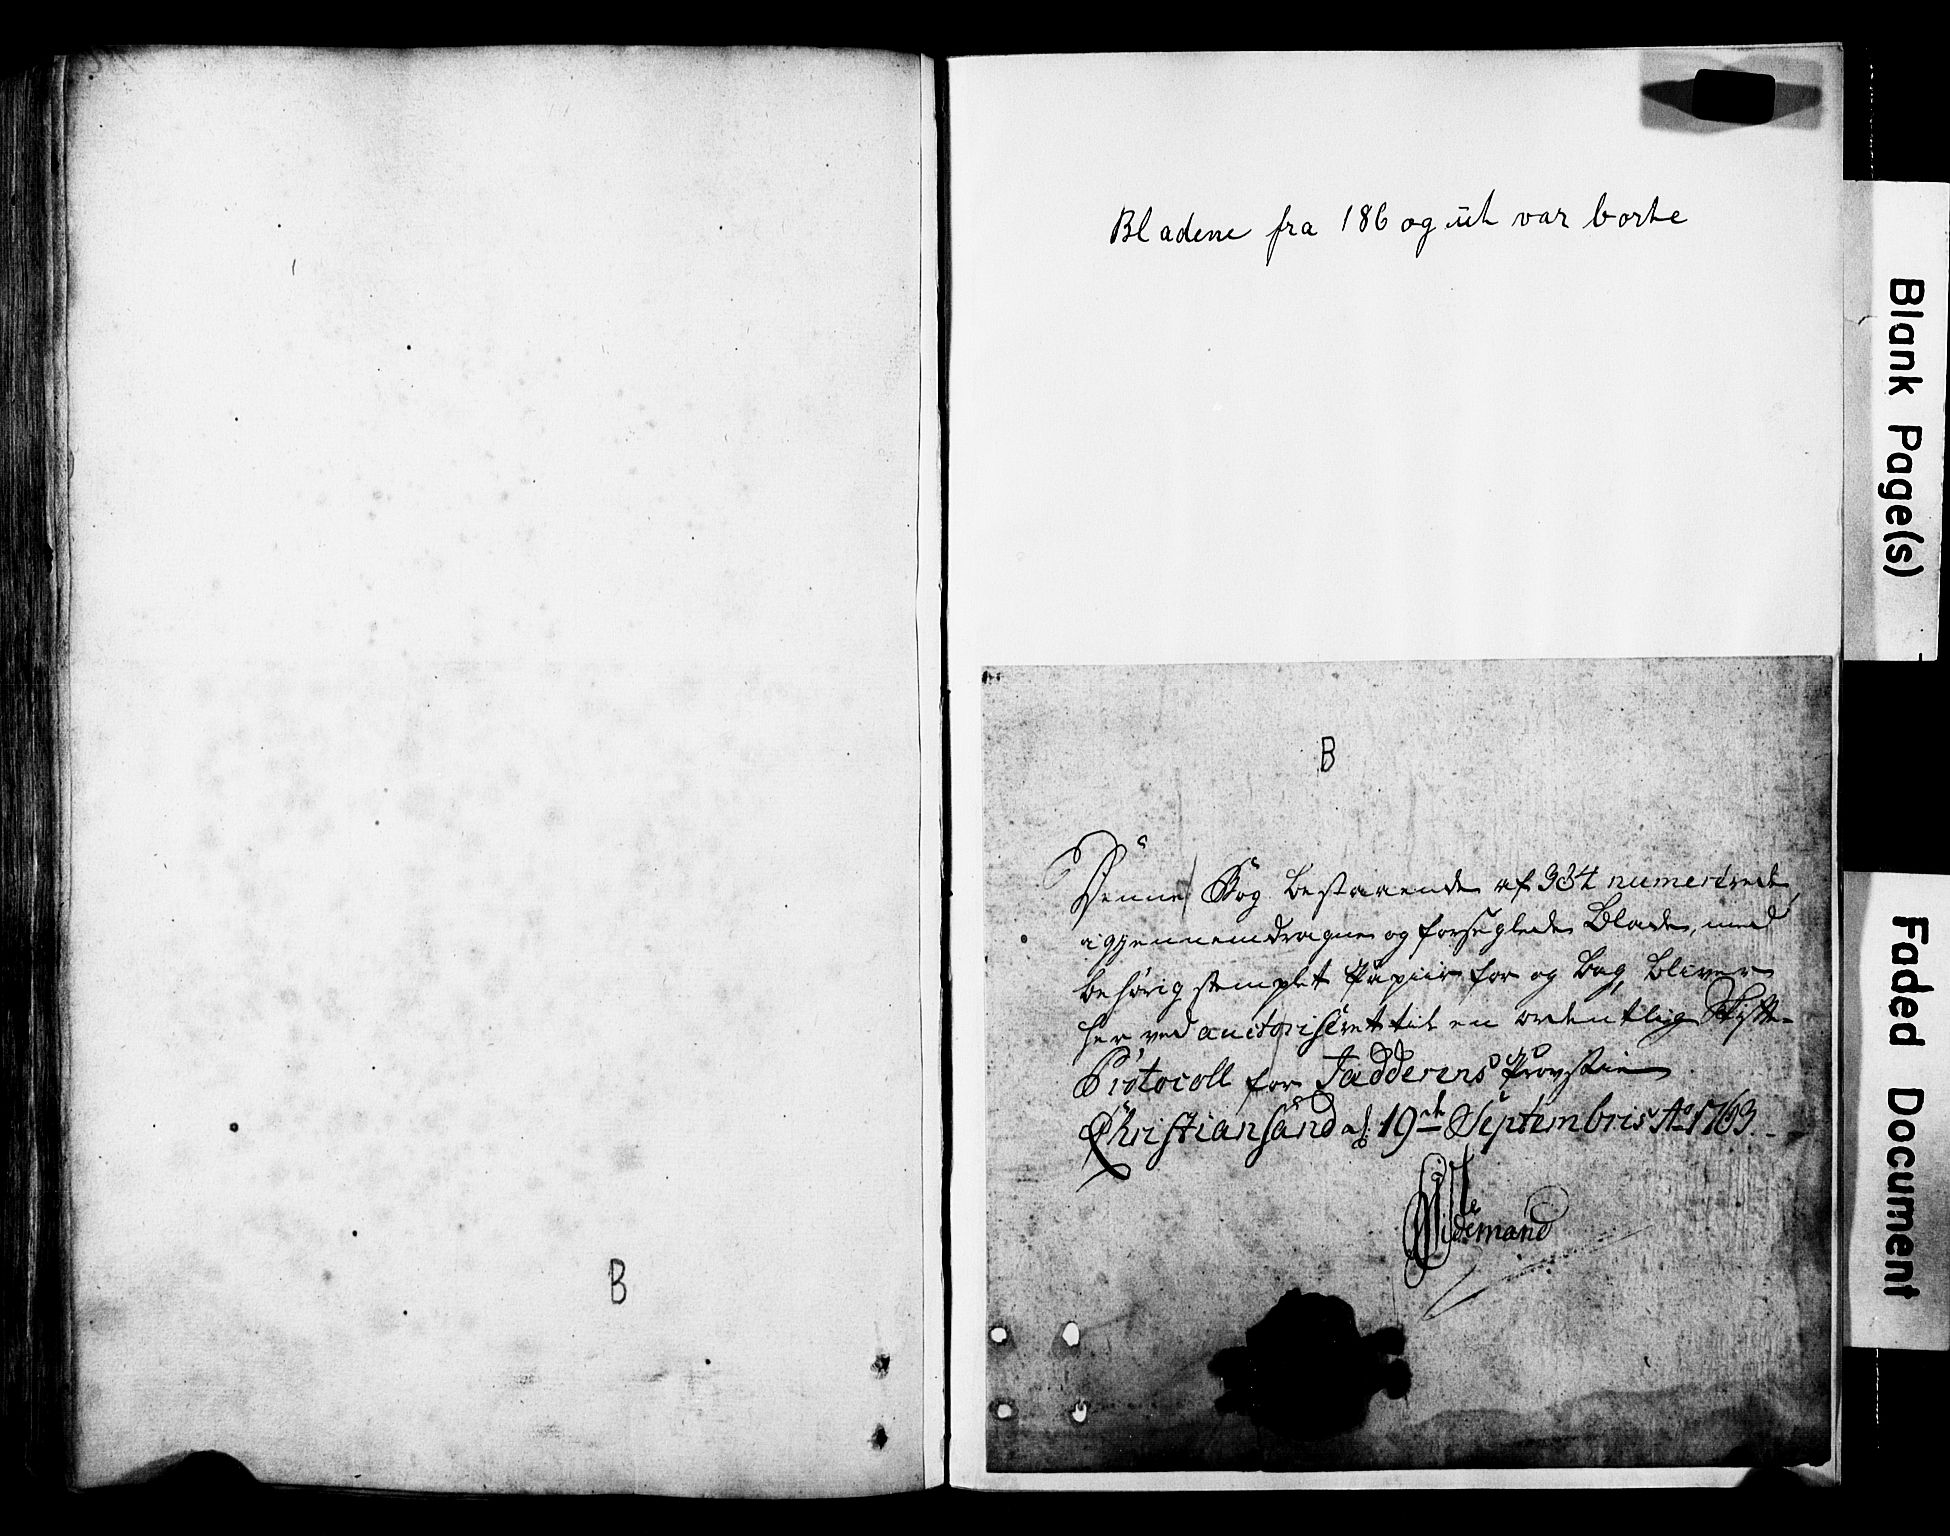 B
Bladene fra 186 og ut var borte
B
Denne Bog bestaaende af 334 numererede,
igjennemdragne og forseglede Blade, med
behörig stemplet Papiir for og bag, bliver
her ved auctoriseret til en ordentlig Skifte-
Protocoll for Jadderens Provstie
Christiansand d: 19de Septembris Ao 1763.
Blank Page(s)
Faded Document